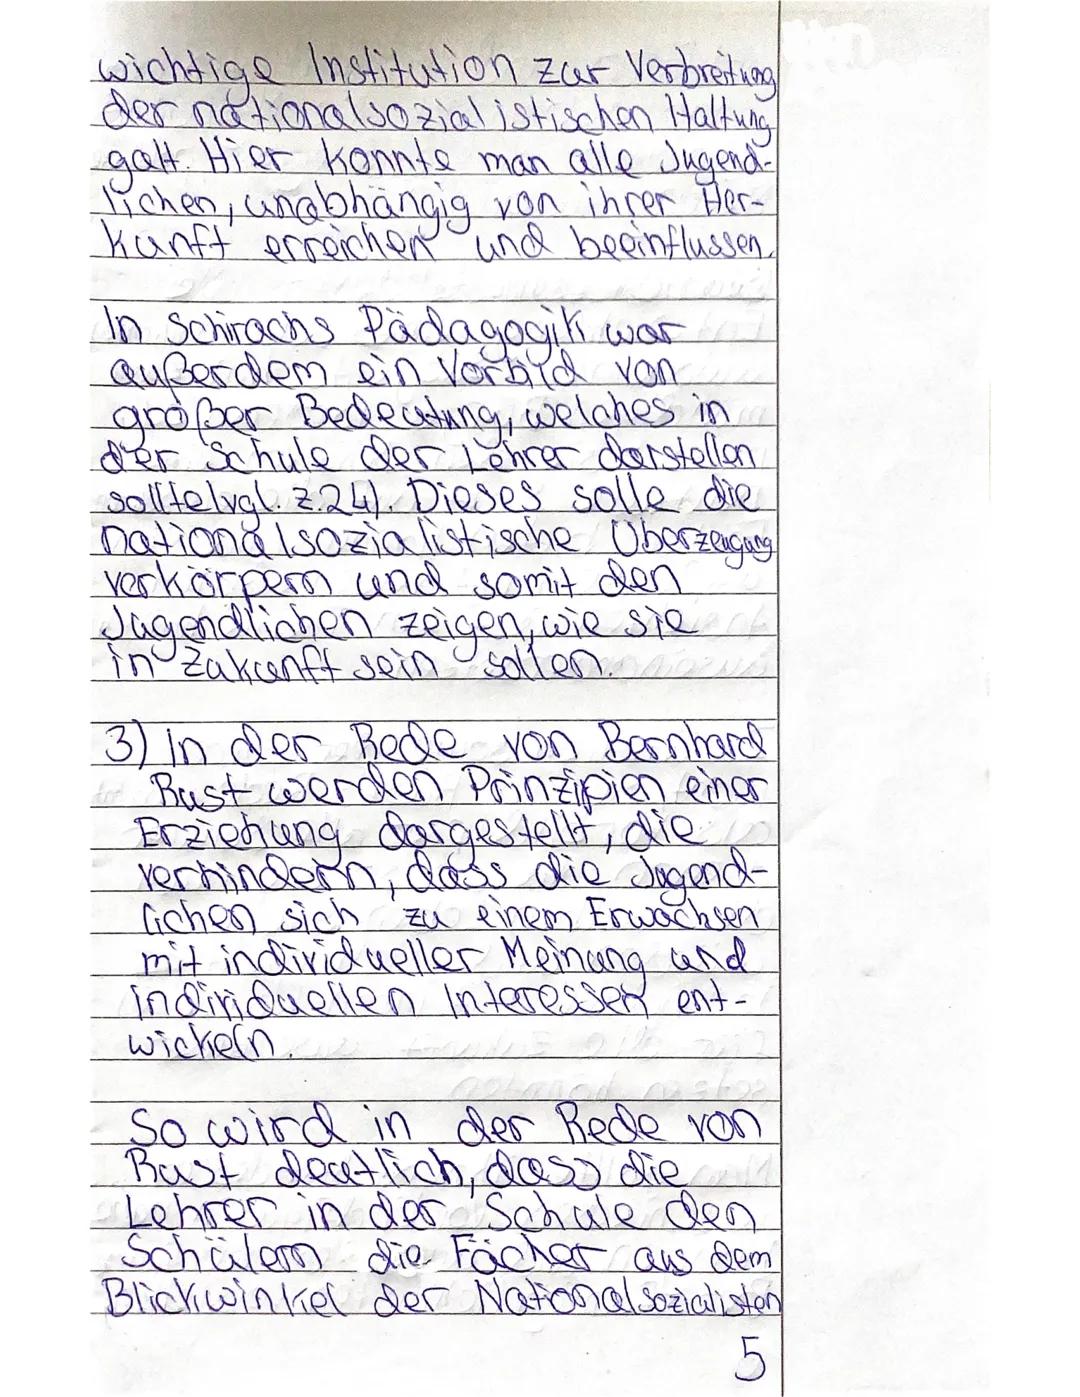 wichtige Institution zur Verbreitung
der nationalsozialistischen Haltung
galt. Hier konnte man alle Jugend-
lichen, unabhängig von ihrer Her-
kunft erreichen und beeinflussen.
In Schirachs Pädagogik war
außerdem ein Vorbild von
großer Bedeutung, welches in
der Schule der Lehrer darstellen
sollte (vgl. Z.24). Dieses solle die
nationalsozialistische Überzeugung
verkörpern und somit den
Jugendlichen zeigen, wie sie
in Zukunft sein sollen.
3) In der Rede von Bernhard
Rust werden Prinzipien einer
Erziehung dargestellt, die
verhindern, dass die Jugend-
lichen sich zu einem Erwachsen
mit individueller Meinung und
individuellen Interessen ent-
wickeln.
So wird in der Rede von
Rust deutlich, dass die
Lehrer in der Schule den
Schülern die Fächer aus dem
Blickwinkel der Nationalsozialisten
5